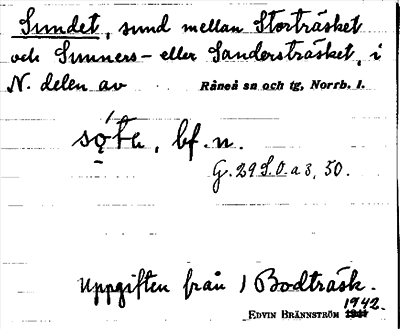 Sundet, sund mellan Storträsket
och Sunners- eller Sandersträsket, i
N. delen av Råneå sn och tg, Norrb. l.
bf. n.
G. 29 S.O. a 3, 50.
Uppgiften från Bodträsk.
1942.
EDVIN BRÄNNSTRÖM